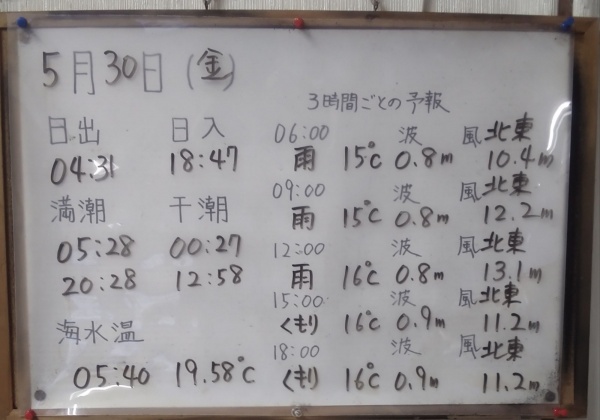 5月30日(金)
3時間ごとの予報
日出 日入
04:31 18:47
満潮 干潮
05:28 00:27
20:28 12:58
海水温
05:40 19.58℃
06:00 波 風 北東
雨 15℃ 0.8m 10.4m
09:00 波 風 北東
雨 15℃ 0.8m 12.2m
12:00 波 風 北東
雨 16℃ 0.8m 13.1m
15:00 波 風 北東
くもり 16℃ 0.9m 11.2m
18:00 波 風 北東
くもり 16℃ 0.9m 11.2m